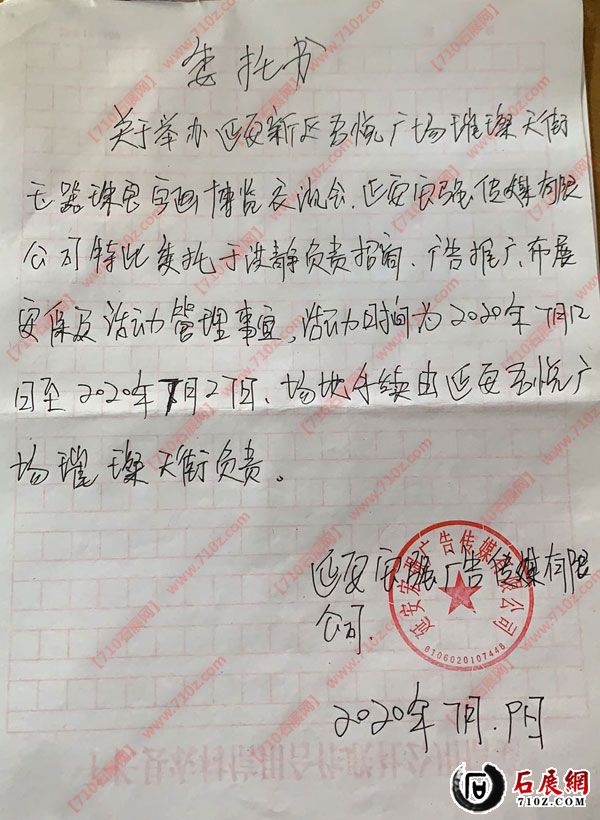 委托书
关于举办延安新区吾悦广场璀璨天街
玉器珠宝字画博览交流会,延安宏强传媒有限
公司特此委托于洪静负责招商、广告推广、布展
安保及活动管理事宜,活动时间为2020年7月12
日至2020年7月27日、场地手续由延安吾悦广
场璀璨天街负责。
延安宏强广告传媒有限
公司.
延安宏强广告传媒有限公司
6106020107446
2020年7月
【710石展网】www.710z.com
石展網
710Z.COM